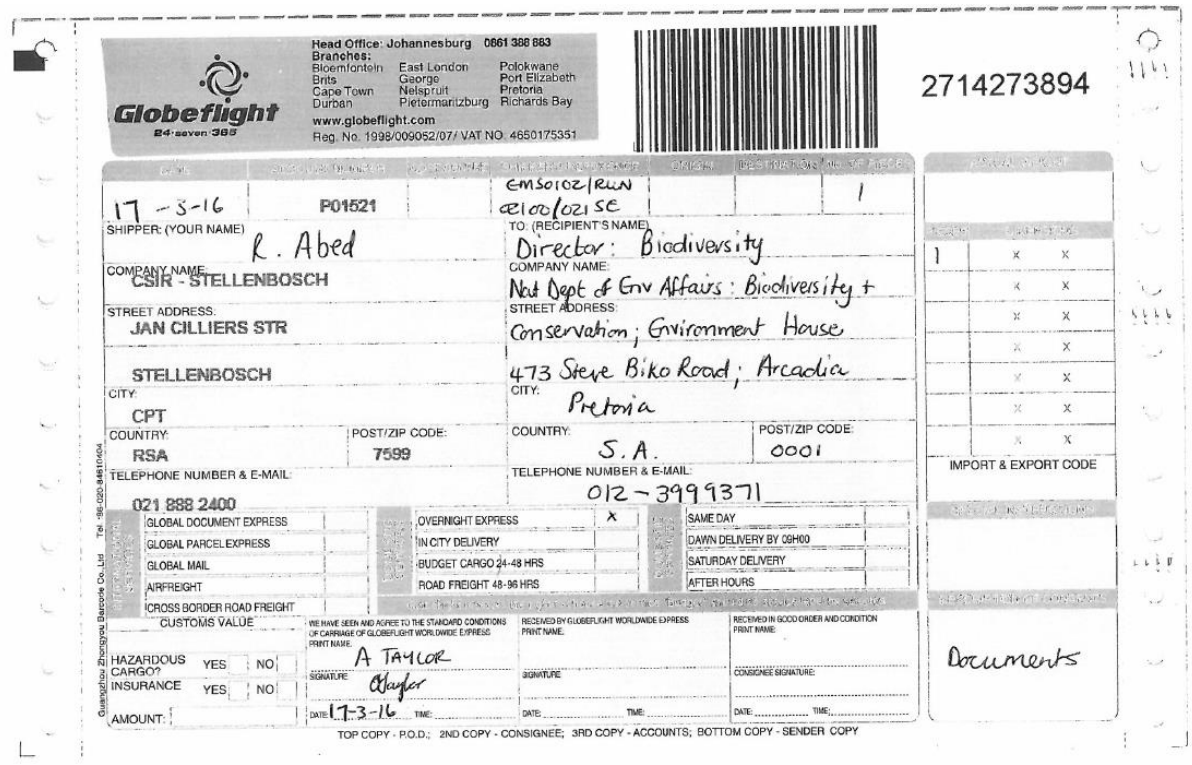 Head Office: Johannesburg 0861 388 883
Branches:
Bloemfontein East London Polokwane
Brits George Port Elizabeth
Cape Town Nelspruit Pretoria
Durban Pietermaritzburg Richards Bay
www.globeflight.com
Reg. No. 1998/009052/07/ VAT NO: 4650175351
Globeflight
24·seven·365
2714273894
17-3-16
P01521
EMS0102/RUN
02100/021 SE
1
SHIPPER: (YOUR NAME)
R. Abed
COMPANY NAME:
CSIR - STELLENBOSCH
STREET ADDRESS:
JAN CILLIERS STR
STELLENBOSCH
CITY:
CPT
COUNTRY: POST/ZIP CODE:
RSA 7599
TELEPHONE NUMBER & E-MAIL:
021 888 2400
TO: (RECIPIENT'S NAME)
Director: Biodiversity
COMPANY NAME:
Nat Dept of Env Affairs: Biodiversity +
STREET ADDRESS:
Conservation; Environment House
473 Steve Biko Road; Arcadia
CITY:
Pretoria
COUNTRY: POST/ZIP CODE:
S.A. 0001
TELEPHONE NUMBER & E-MAIL:
012-3999371
1 X X
X X
X X
X X
X X
X X
X X
IMPORT & EXPORT CODE
GLOBAL DOCUMENT EXPRESS
GLOBAL PARCELEXPRESS
GLOBAL MAIL
AIRFREIGHT
CROSS BORDER ROAD FREIGHT
OVERNIGHT EXPRESS X
IN CITY DELIVERY
BUDGET CARGO 24-48 HRS
ROAD FREIGHT 48-96 HRS
SAME DAY
DAWN DELIVERY BY 09H00
SATURDAY DELIVERY
AFTER HOURS
CUSTOMS VALUE
HAZARDOUS CARGO? YES NO
INSURANCE YES NO
AMOUNT:
WE HAVE SEEN AND AGREE TO THE STANDARD CONDITIONS
OF CARRIAGE OF GLOBEFLIGHT WORLDWIDE EXPRESS
PRINT NAME:
A TAYLOR
SIGNATURE
ATaylor
DATE: 17-3-16 TIME:
RECEIVED BY GLOBEFLIGHT WORLDWIDE EXPRESS
PRINT NAME:
SIGNATURE
DATE: TIME:
RECEIVED IN GOOD ORDER AND CONDITION
PRINT NAME:
CONSIGNEE SIGNATURE:
DATE: TIME:
Documents
TOP COPY - P.O.D.; 2ND COPY - CONSIGNEE; 3RD COPY - ACCOUNTS; BOTTOM COPY - SENDER COPY